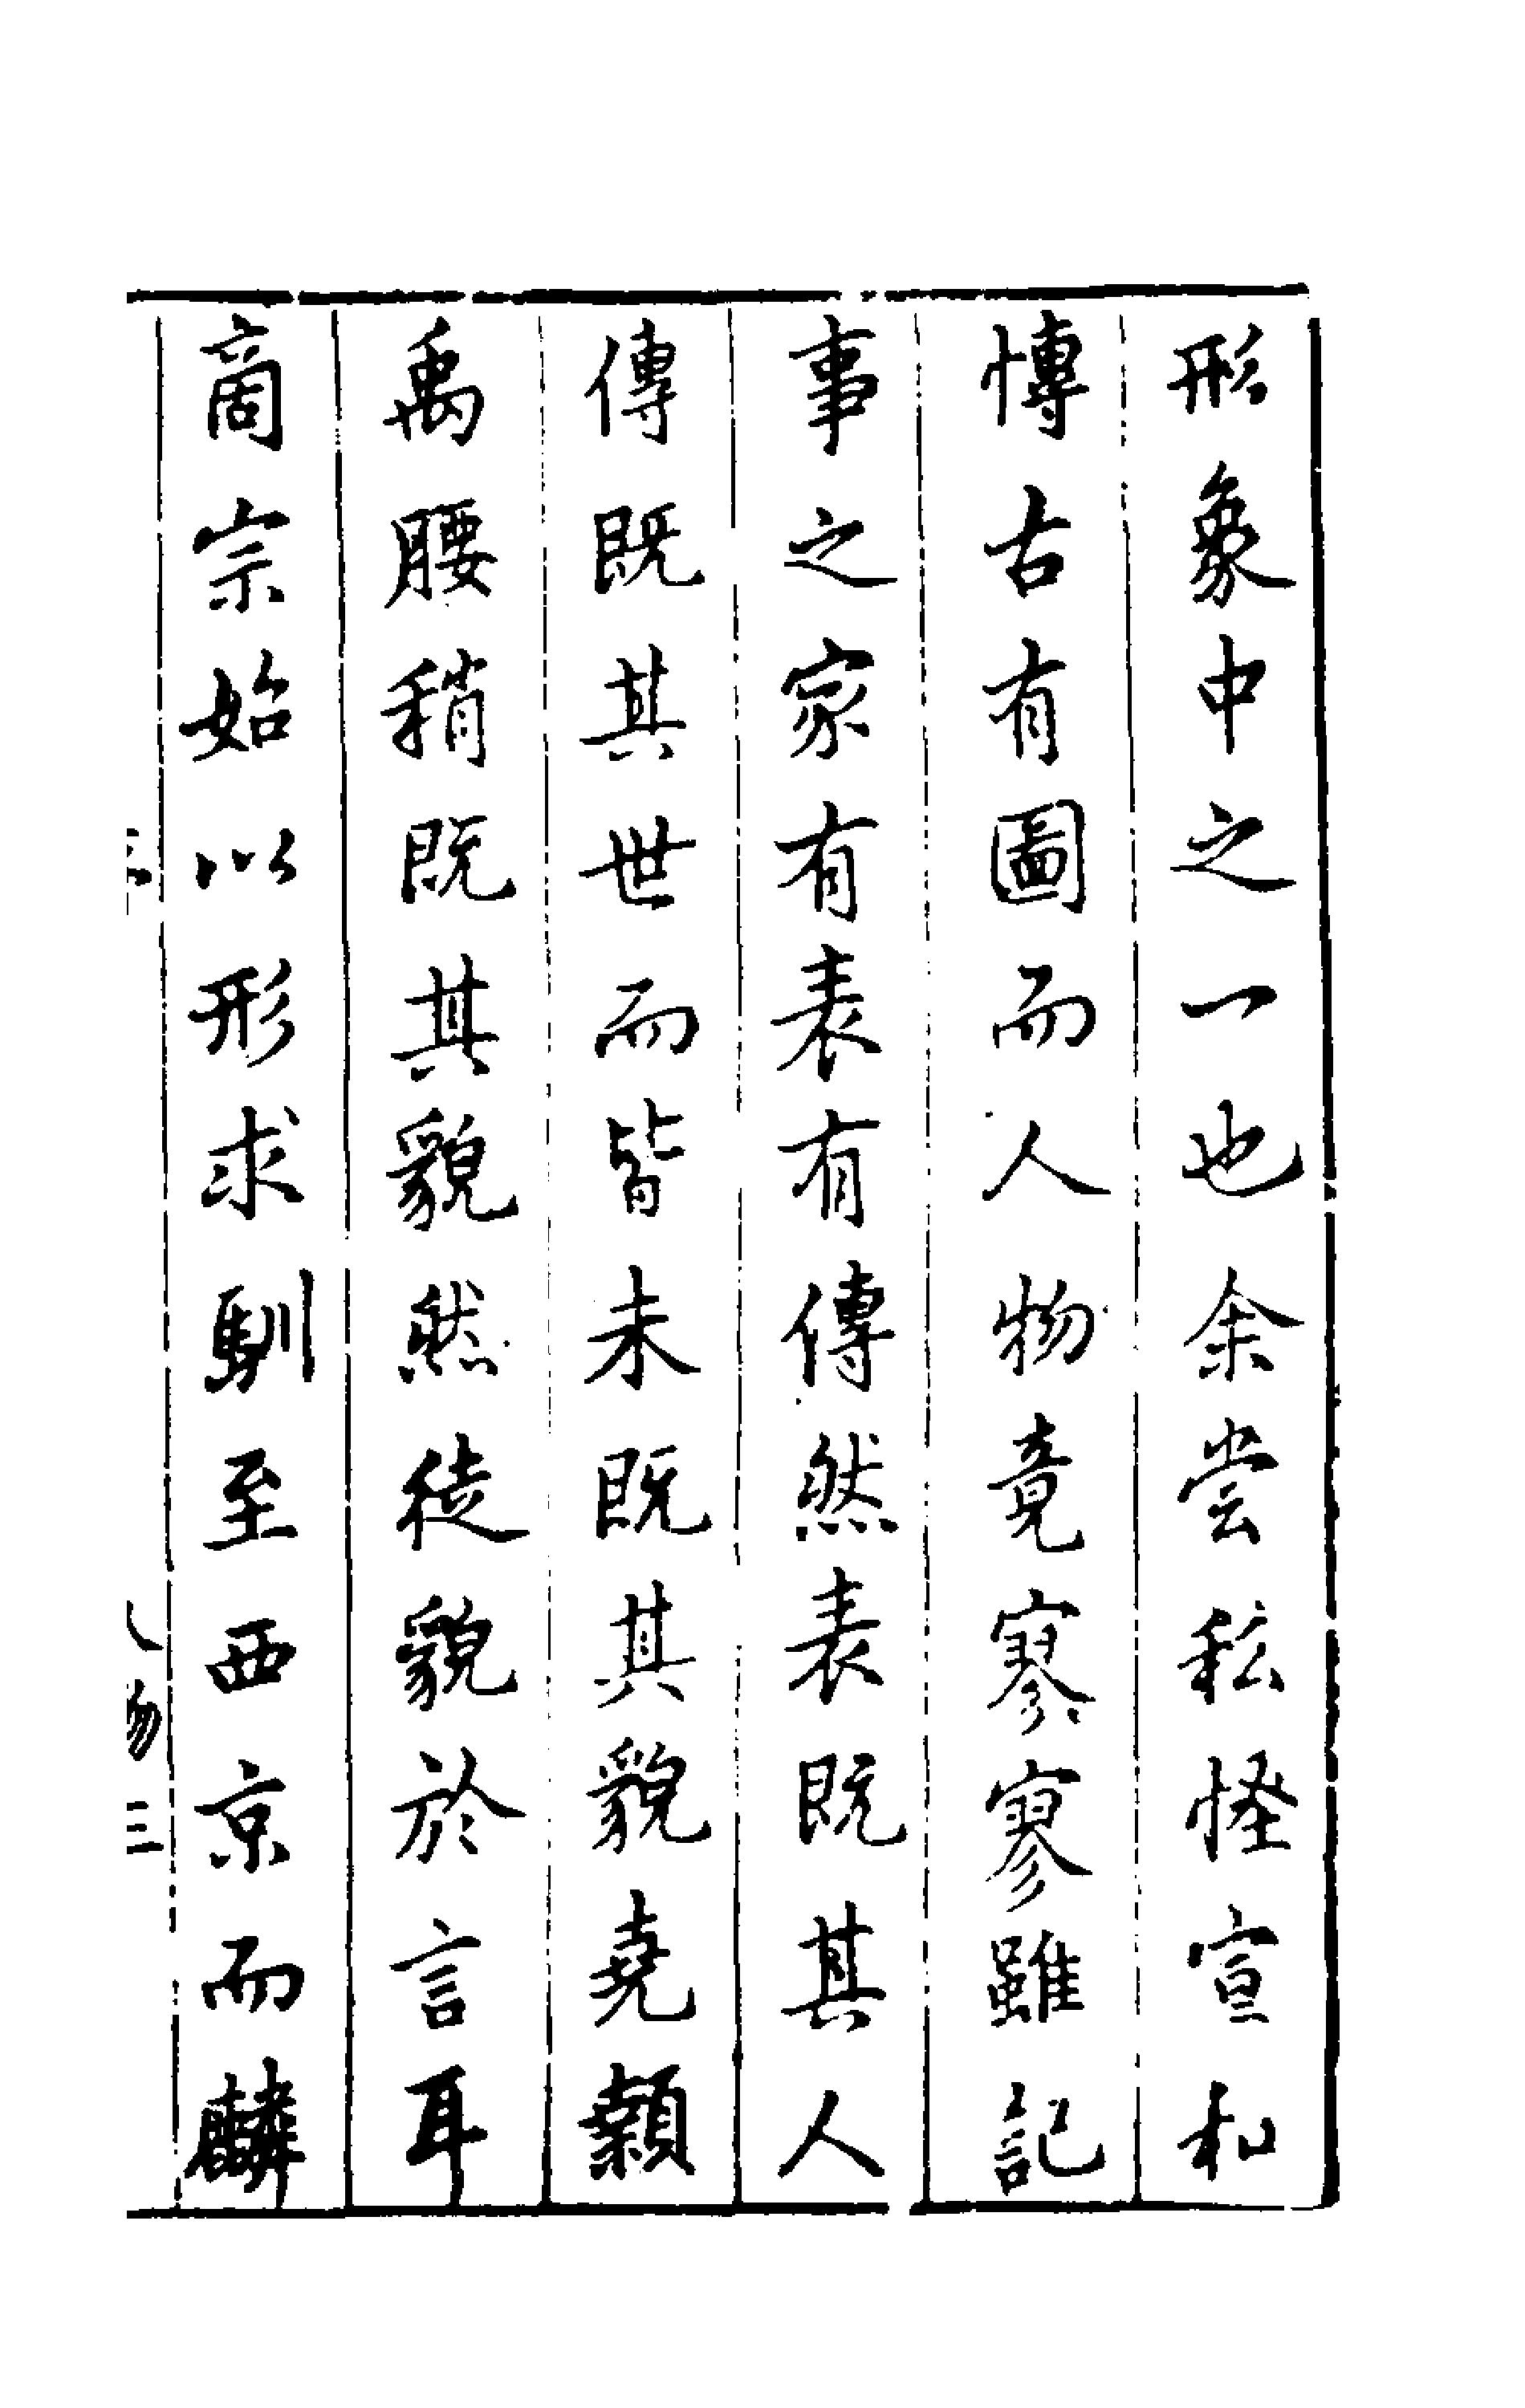 形象中之一也余尝私怪宣和
博古有圖而人物竟寥寥雖記
事之家有表有傳然表既其人
傳既其世而皆未既其貌堯顙
禹腰稍既其貌然徒貌於言耳
商宗始以形求馴至西京而麟